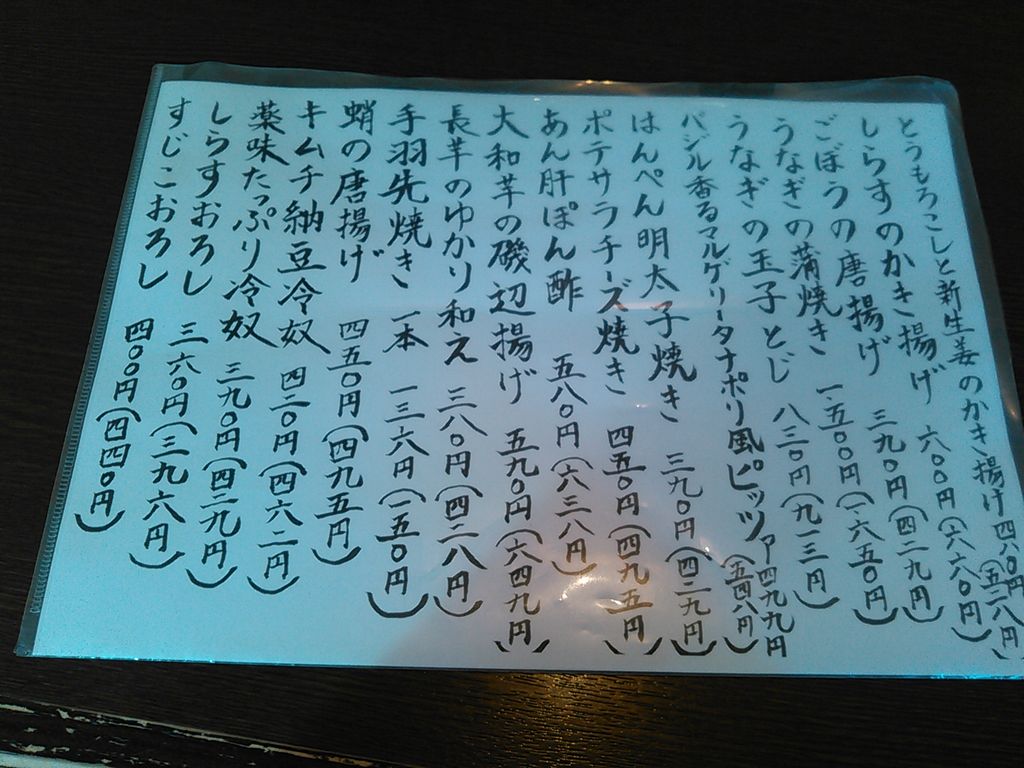 とうもろこしと新生姜のかき揚げ 四八〇円(五二八円)
しらすのかき揚げ 六〇〇円(六六〇円)
ごぼうの唐揚げ 三九〇円(四二九円)
うなぎの蒲焼き 一、五〇〇円(一、六五〇円)
うなぎの玉子とじ 八三〇円(九一三円)
バジル香るマルゲリータナポリ風ピッツァ 四九九円(五四八円)
はんぺん明太子焼き 三九〇円(四二九円)
ポテサラチーズ焼き 四五〇円(四九五円)
あん肝ぽん酢 五八〇円(六三八円)
大和芋の磯辺揚げ 五九〇円(六四九円)
長芋のゆかり和え 三八〇円(四一八円)
手羽先焼き 一本 一三六円(一五〇円)
蛸の唐揚げ 四五〇円(四九五円)
キムチ納豆冷奴 四二〇円(四六二円)
薬味たっぷり冷奴 三九〇円(四二九円)
しらすおろし 三六〇円(三九六円)
すじこおろし 四〇〇円(四四〇円)